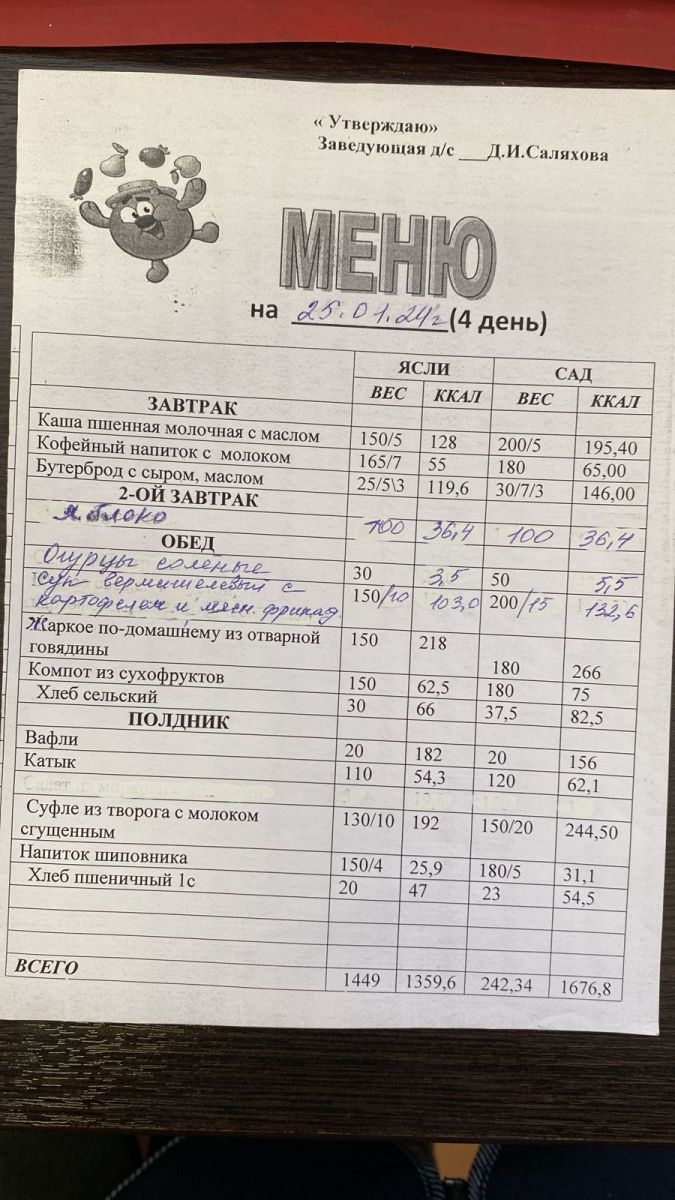 « Утверждаю»
Заведующая д/с ___Д.И.Саляхова
МЕНЮ
на 25.01.24г (4 день)
ЯСЛИ САД
ВЕС ККАЛ ВЕС ККАЛ
ЗАВТРАК
Каша пшенная молочная с маслом 150/5 128 200/5 195,40
Кофейный напиток с молоком 165/7 55 180 65,00
Бутерброд с сыром, маслом 25/5\3 119,6 30/7/3 146,00
2-ОЙ ЗАВТРАК
Яблоко 100 36,4 100 36,4
ОБЕД
Огурцы соленые 30 3,5 50 5,5
суп вермишелевый с
картофелем и мясн. фрикад. 150/10 103,0 200/15 132,6
Жаркое по-домашнему из отварной
говядины 150 218 180 266
Компот из сухофруктов 150 62,5 180 75
Хлеб сельский 30 66 37,5 82,5
ПОЛДНИК
Вафли 20 182 20 156
Катык 110 54,3 120 62,1
Суфле из творога с молоком
сгущенным 130/10 192 150/20 244,50
Напиток шиповника 150/4 25,9 180/5 31,1
Хлеб пшеничный 1с 20 47 23 54,5
ВСЕГО 1449 1359,6 242,34 1676,8